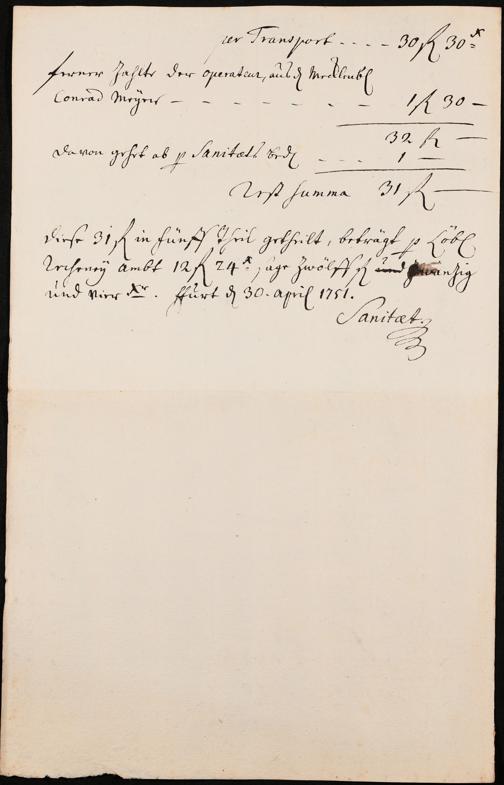 per Transport - - - - 30 fl 30 x
ferner Zahlte der operateur, aus d Mecklenb
Conrad Meyer - - - - - - 1 fl 30 -
32 fl -
davon gehet ab p Sanitæts bed - - - 1 -
Rest Summa 31 fl -
diese 31 fl in fünff theil getheilt, beträgt p Löbl
Recheney ambt 12 fl 24 x, sage Zwölff fl und zwanzig
und vier Xr. ffurt d 30. april 1751.
Sanitæt